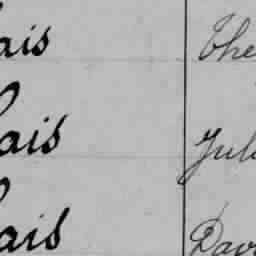 ais The
ais Jul
ais Dav